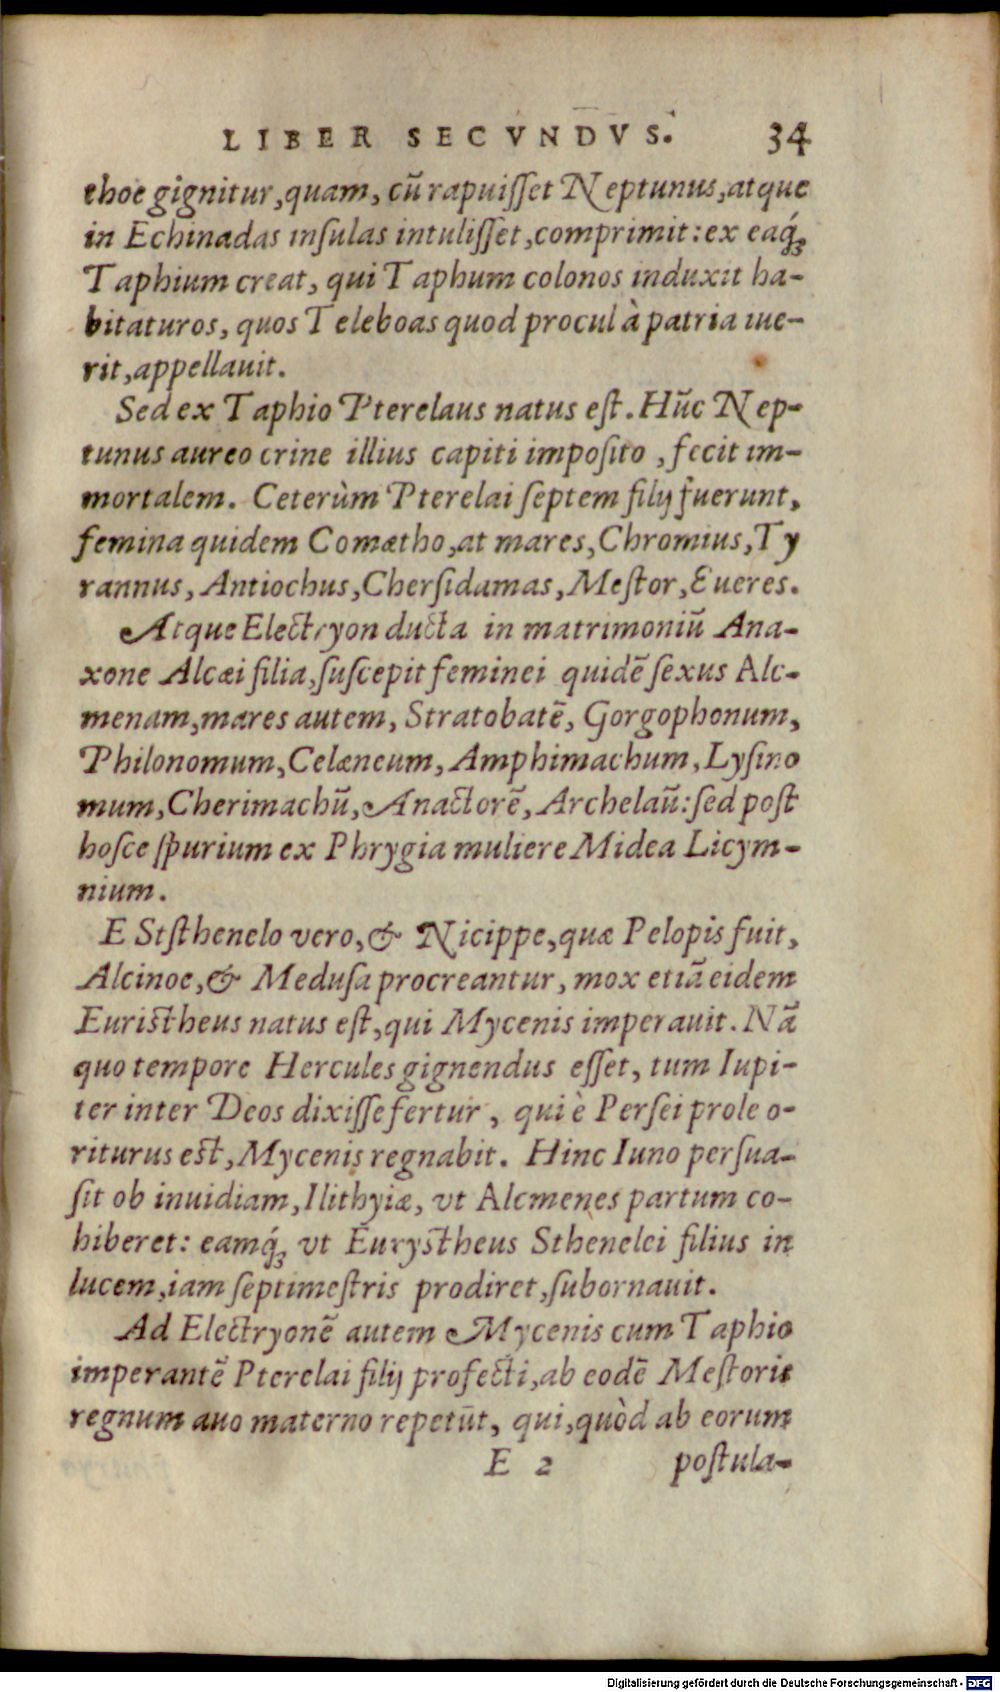 LIBER SECVNDVS. 34
thoe gignitur, quam, cũ rapuiſſet Neptunus, atque
in Echinadas inſulas intuliſſet, comprimit: ex eaq́ꝫ
Taphium creat, qui Taphum colonos induxit ha-
bitaturos, quos Teleboas quod procul à patria iue-
rit, appellauit.
Sed ex Taphio Pterelaus natus eſt. Hũc Nep-
tunus aureo crine illius capiti impoſito, fecit im-
mortalem. Ceterùm Pterelai ſeptem filij fuerunt,
femina quidem Comætho, at mares, Chromius, Ty
rannus, Antiochus, Cherſidamas, Meſtor, Eueres.
Atque Electryon ducta in matrimoniũ Ana-
xone Alcæi filia, ſuſcepit feminei quidẽ ſexus Alc-
menam, mares autem, Stratobatẽ, Gorgophonum,
Philonomum, Celæneum, Amphimachum, Lyſino
mum, Cherimachũ, Anactorẽ, Archelaũ: ſed poſt
hoſce ſpurium ex Phrygia muliere Midea Licym-
nium.
E Stſthenelo vero, & Nicippe, quæ Pelopis fuit,
Alcinoe, & Meduſa procreantur, mox etiã eidem
Euriſtheus natus eſt, qui Mycenis imperauit. Nã
quo tempore Hercules gignendus eſſet, tum Iupi-
ter inter Deos dixiſſe fertur, qui è Perſei prole o-
riturus eſt, Mycenis regnabit. Hinc Iuno perſua-
ſit ob inuidiam, Ilithyiæ, vt Alcmenes partum co-
hiberet: eamq́ꝫ vt Euryſtheus Sthenelei filius in
lucem, iam ſeptimeſtris prodiret, ſubornauit.
Ad Electryonẽ autem Mycenis cum Taphio
imperantẽ Pterelai filij profecti, ab eodẽ Meſtoris
regnum auo materno repetũt, qui, quòd ab eorum
E 2 poſtula-
Digitalisierung gefördert durch die Deutsche Forschungsgemeinschaft - DFG